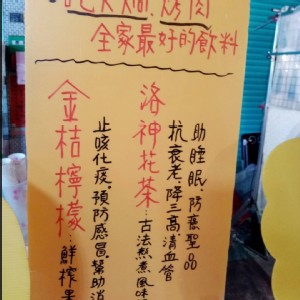 吃火鍋、烤肉
全家最好的飲料
洛神花茶：古法熬煮風味
助睡眠、防癌聖品
抗衰老、降三高、清血管
金桔檸檬：鮮榨果
止咳化痰、預防感冒、幫助消